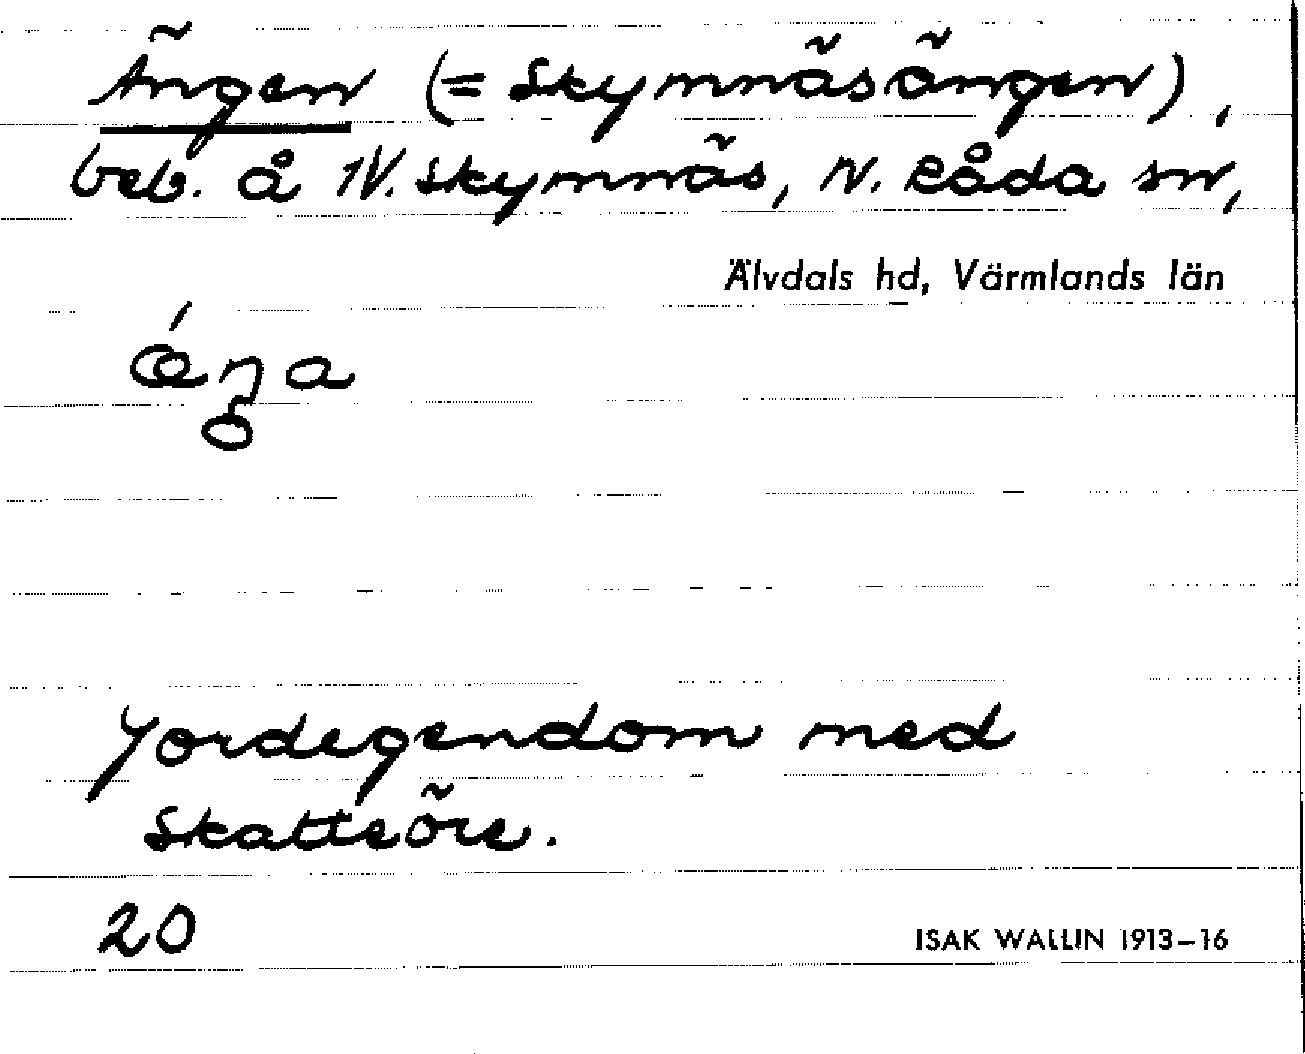 Ängen (= Skymnäsängen),
beb. å N. Skymnäs, N. Råda sn,
Älvdals hd, Värmlands län
Jordegendom med
Skatteöre.
20
ISAK WALLIN 1913–16